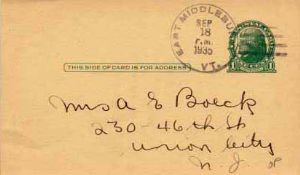 EAST MIDDLEBU
SEP
18
P.M.
1935
VT.
THIS SIDE OF CARD IS FOR ADDRESS
1 1
Mrs A E Boeck
230-46th St
Union City
N. J.